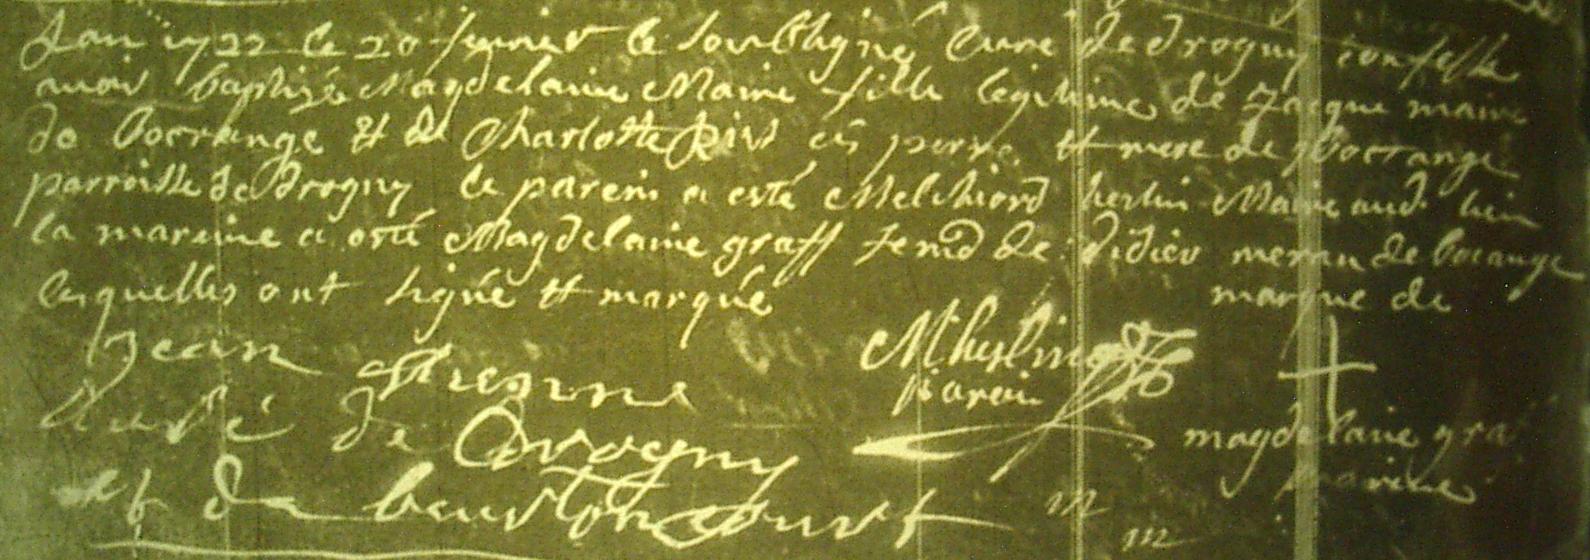 Lan 1722 le 20 fevrier le soubsigné Curé de drogny confesse
avoir baptizé Magdelaine Maire fille legitime de Jacque maire
de bocrange et de Charlotte ses pere et mere de bocrange
parroisse de drogny le parein a esté Melchiord herlin Maire aud. lieu
la mareine a esté Magdelaine graff femē de didier de bocange
lesquelles ont signé et marqué marque de
Jean Curé de Drogny et de
M herlin parein
magdelaine gra mareine